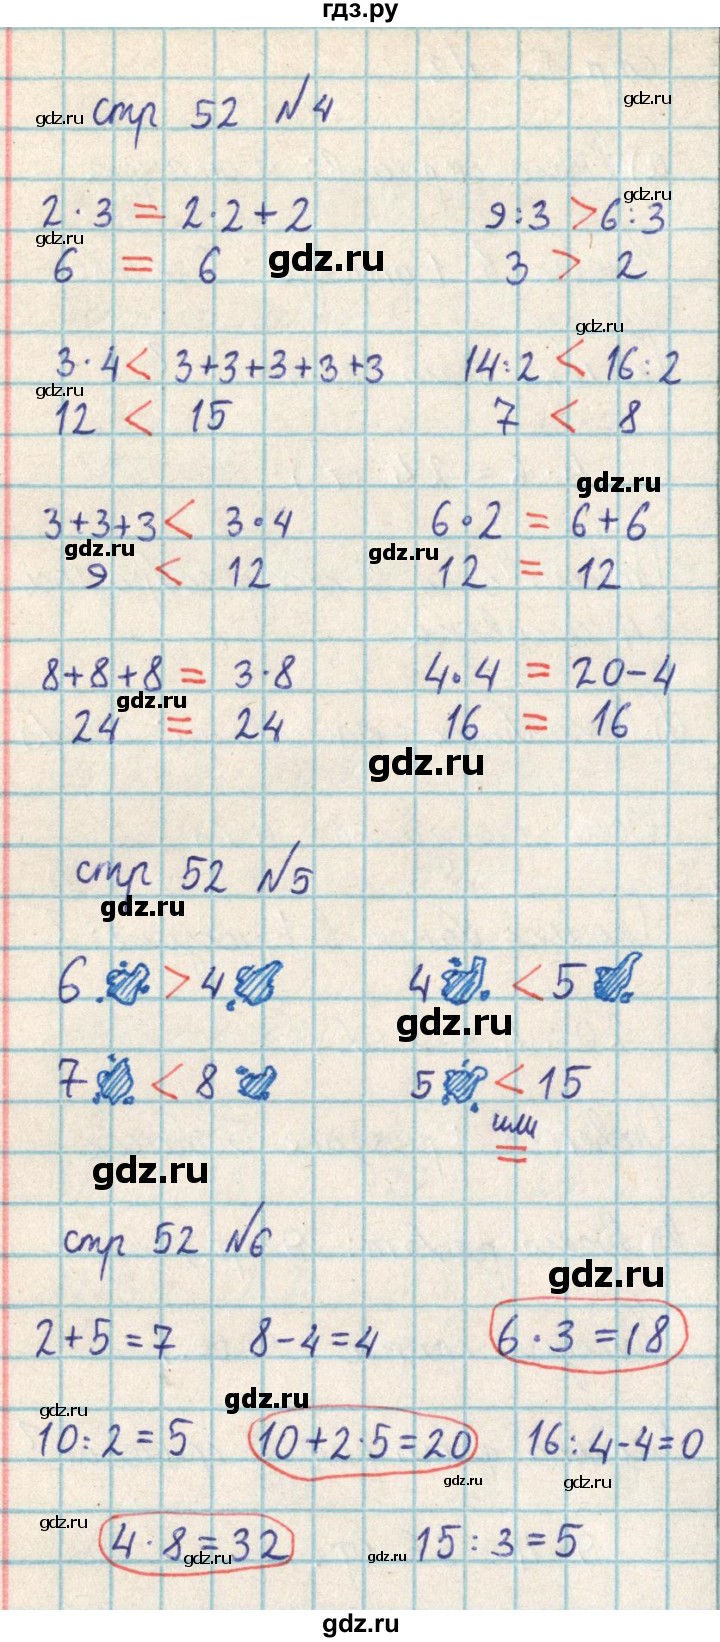 гдз.ру
стр 52 №4
gdz.ru
gdz.ru
2·3 = 2·2+2 9:3 > 6:3
gdz.ru
gdz.ru
6 = 6 3 > 2
gdz.ru
gdz.ru
3·4 < 3+3+3+3+3 14:2 < 16:2
gdz.ru
12 < 15 7 < 8
gdz.ru
3+3+3 < 3·4 6·2 = 6+6
gdz.ru
gdz.ru
9 < 12 12 = 12
8+8+8 = 3·8 4·4 = 20-4
gdz.ru
24 = 24 16 = 16
gdz.ru
стр 52 №5
gdz.ru
6 > 4 4 < 5
gdz.ru
7 < 8 5 < 15
или
=
gdz.ru
стр 52 №6
gdz.ru
2+5=7 8-4=4 6·3=18
gdz.ru
gdz.ru
10:2=5 10+2·5=20 16:4-4=0
gdz.ru
gdz.ru
gdz.ru
4·8=32 15:3=5
gdz.ru
gdz.ru
gdz.ru